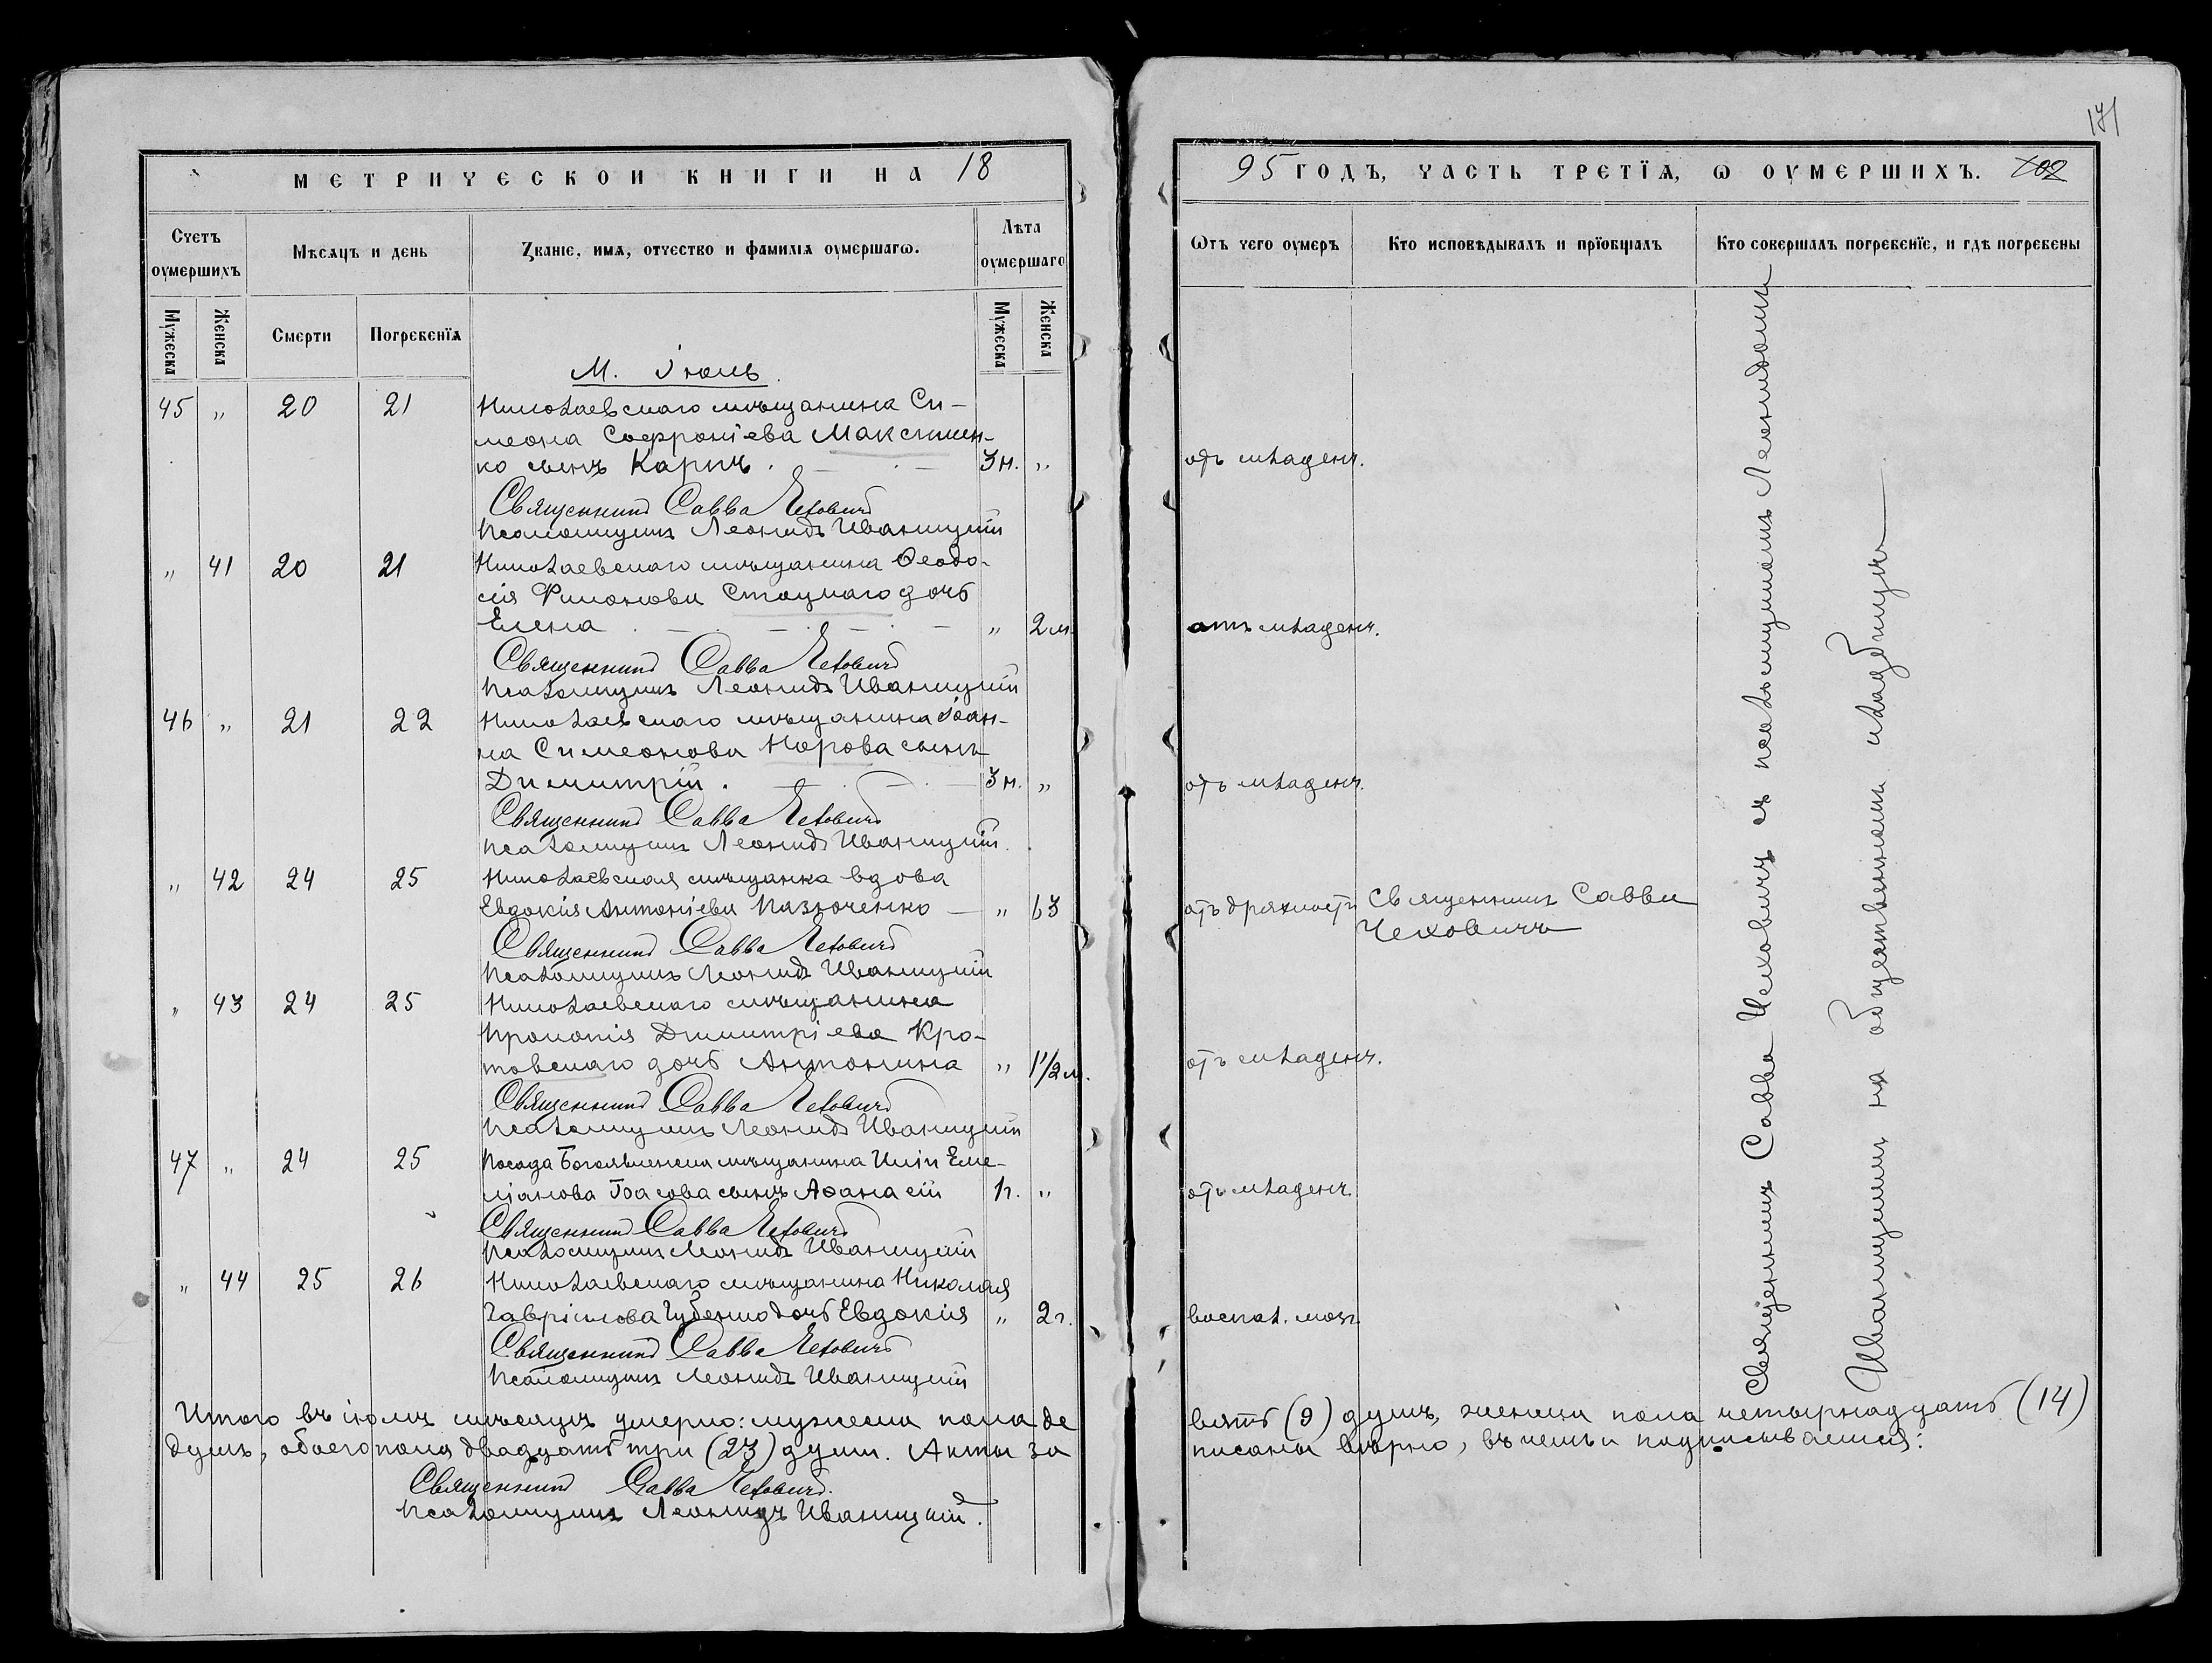 171
МЕТРИЧЕСКОЙ КНИГИ НА 18
95 ГОДЪ, ЧАСТЬ ТРЕТЇѦ, Ѡ ОУМЕРШИХЪ. 102
Счетъ оумершихъ
Мѣсяцъ и день
Званіе, имя, отчество и фамилія оумершагѡ.
Лѣта оумершаго
Ѿтъ чего оумеръ
Кто исповѣдывалъ и прїобщалъ
Кто совершалъ погребенїе, и гдѣ погребены
Мужеска
Женска
Смерти
Погребенїя
Мужеска
Женска
М. Іюль.
45 " 20 21 Николаевскаго мѣщанина Си-
меона Софроніева Максимен-
ко сынъ Карпъ. 3 н. " отъ младенч.
Священникъ Савва Чеховичъ
Псаломщикъ Леонидъ Иваницкій
" 41 20 21 Николаевскаго мѣщанина Ѳеодо-
сія Филонова Стацкаго дочь
Елена " 2 м. отъ младенч.
Священникъ Савва Чеховичъ
Псаломщикъ Леонидъ Иваницкій
46 " 21 22 Николаевскаго мѣщанина Іоан-
на Симеонова Норова сынъ
Димитрій. 3 н. " отъ младенч.
Священникъ Савва Чеховичъ
Псаломщикъ Леонидъ Иваницкій.
" 42 24 25 Николаевская мѣщанка вдова
Евдокія Антоніева Назюченко " 63 отъ дряхлости Священникъ Савва
Чеховичъ
Священникъ Савва Чеховичъ
Псаломщикъ Леонидъ Иваницкій
" 43 24 25 Николаевскаго мѣщанина
Прокопія Димитріева Кро-
товскаго дочь Антонина " 1 1/2 м. отъ младенч.
Священникъ Савва Чеховичъ
Псаломщикъ Леонидъ Иваницкій
47 " 24 25 Посада Богоявленска мѣщанина Иліи Еме-
ліанова сынъ Аѳанасій 1 г. " отъ младенч.
Священникъ Савва Чеховичъ
Псаломщикъ Леонидъ Иваницкій
" 44 25 26 Николаевскаго мѣщанина Николая
Гавріилова Губенко дочь Евдокія " 2 г. воспал. мозг.
Священникъ Савва Чеховичъ
Псаломщикъ Леонидъ Иваницкій
Священникъ Савва Чеховичъ съ псаломщикомъ Леонидомъ
Иваницкимъ на общественномъ кладбищѣ
Итого въ іюлѣ мѣсяцѣ умерло: мужеска пола де
вять (9) душъ, женска пола четырнадцать (14)
душъ, обоего пола двадцать три (23) души. Акты за
писаны вѣрно, въ чемъ и подписываемся:
Священникъ Савва Чеховичъ.
Псаломщикъ Леонидъ Иваницкій.